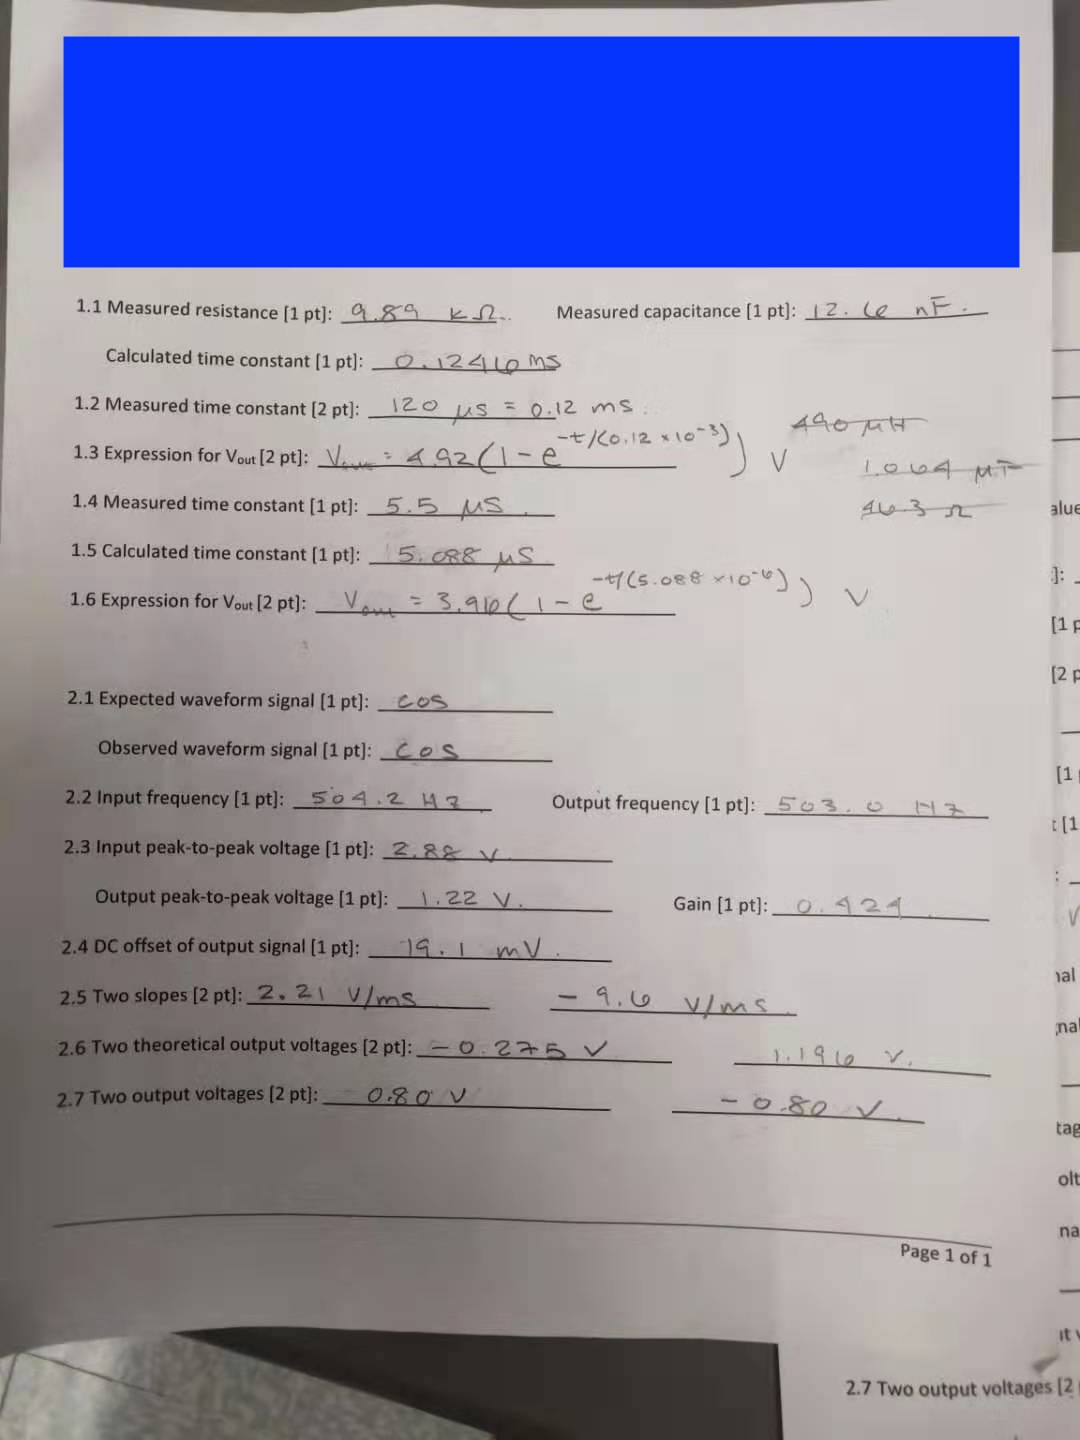 1.1 Measured resistance [1 pt]: 9.89 kΩ. Measured capacitance [1 pt]: 12.6 nF.
Calculated time constant [1 pt]: 0.1246 ms
1.2 Measured time constant [2 pt]: 120 μs = 0.12 ms.
1.3 Expression for Vout [2 pt]: Vout = 4.92(1-e^-t/(0.12 x10^-3)) V
490 μH
1.064 μF
46.3 Ω
1.4 Measured time constant [1 pt]: 5.5 μs.
1.5 Calculated time constant [1 pt]: 5.088 μs
1.6 Expression for Vout [2 pt]: Vout = 3.96(1-e^-t/(5.088 x10^-6)) V
2.1 Expected waveform signal [1 pt]: cos
Observed waveform signal [1 pt]: cos
2.2 Input frequency [1 pt]: 504.2 Hz Output frequency [1 pt]: 503.0 Hz
2.3 Input peak-to-peak voltage [1 pt]: 2.88 V
Output peak-to-peak voltage [1 pt]: 1.22 V. Gain [1 pt]: 0.424.
2.4 DC offset of output signal [1 pt]: 19.1 mV.
2.5 Two slopes [2 pt]: 2.21 V/ms -9.6 V/ms.
2.6 Two theoretical output voltages [2 pt]: -0.275 V 1.196 V.
2.7 Two output voltages [2 pt]: 0.80 V -0.80 V.
Page 1 of 1
alue
]:
[1 p
[2 p
[1
t [1
:
V
nal
nal
tag
olt
na
it v
2.7 Two output voltages [2